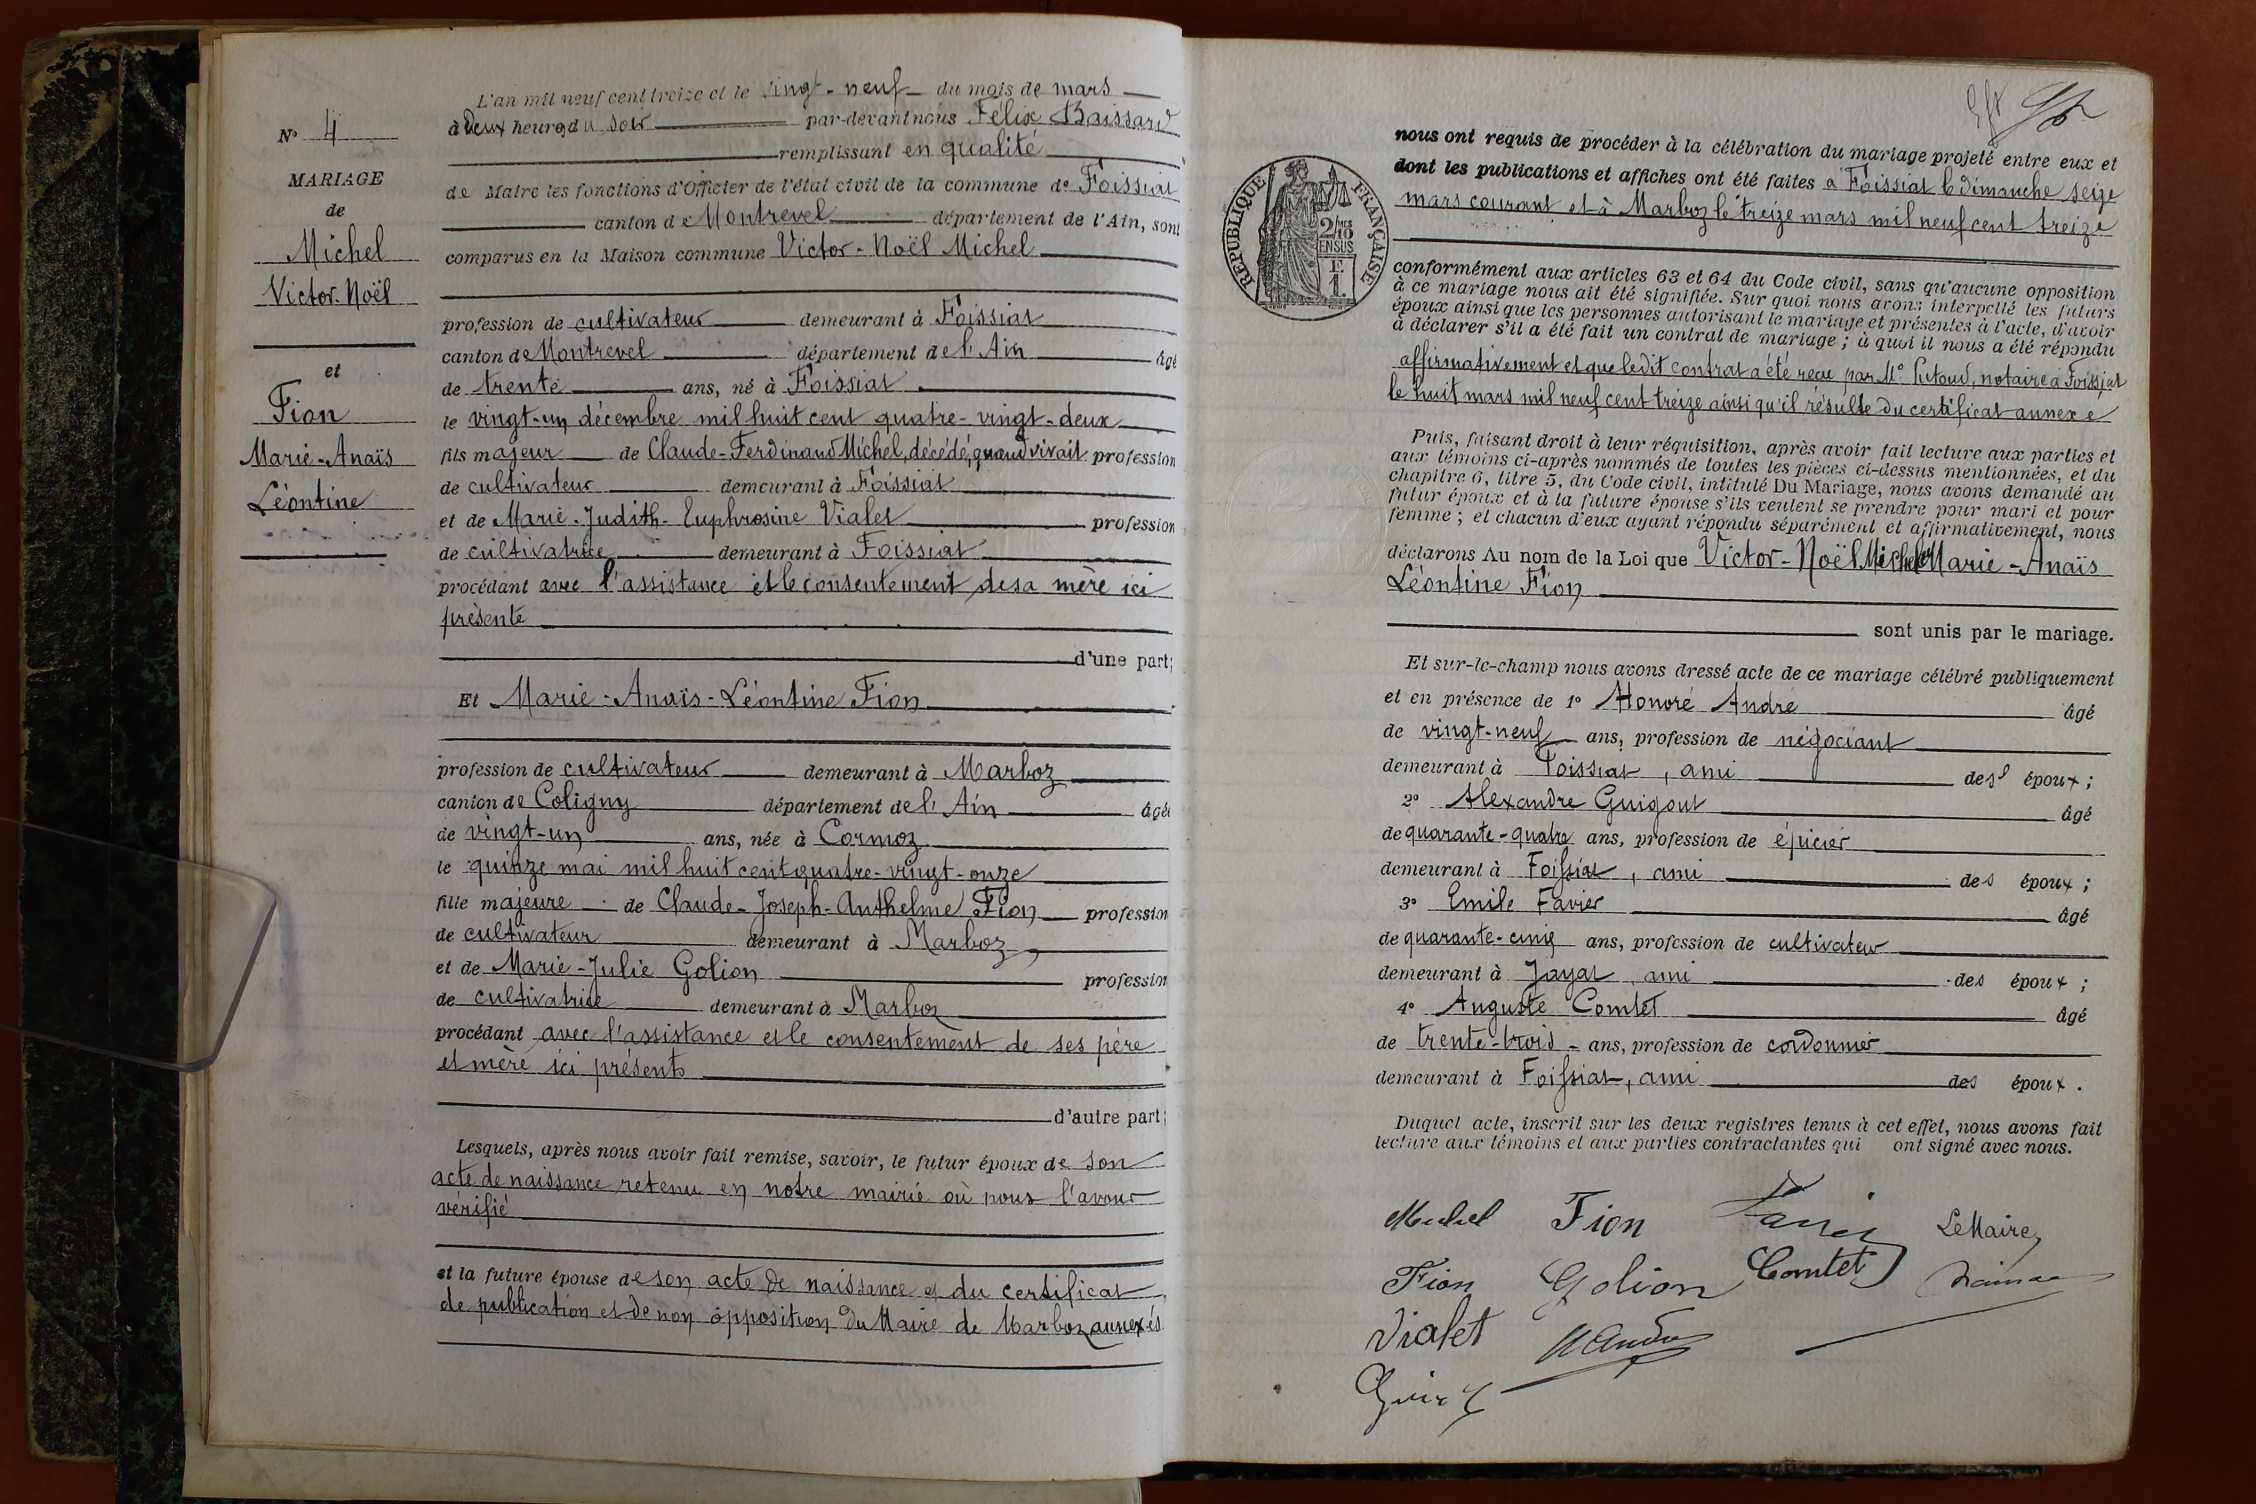 N° 4
MARIAGE
de
Michel
Victor-Noël
et
Fion
Marie-Anaïs
Léontine
L'an mil neuf cent treize et le vingt-neuf du mois de mars
à deux heures du soir par-devant nous Félix
remplissant en qualité
de Maire les fonctions d'Officier de l'état civil de la commune de Foissiat
canton de Montrevel département de l'Ain, sont
comparus en la Maison commune Victor-Noël Michel
profession de cultivateur demeurant à Foissiat
canton de Montrevel département de l'Ain âgé
de trente ans, né à Foissiat
le vingt-un décembre mil huit cent quatre-vingt-deux
fils majeur de Claude-Ferdinand Michel, décédé, quand vivait profession
de cultivateur demeurant à Foissiat
et de Marie-Judith-Euphrosine Vialet profession
de cultivatrice demeurant à Foissiat
procédant avec l'assistance et le consentement de sa mère ici
présente
d'une part;
Et Marie-Anaïs-Léontine Fion
profession de cultivateur demeurant à Marboz
canton de Coligny département de l'Ain âgée
de vingt-un ans, née à Cormoz
le quinze mai mil huit cent quatre-vingt-onze
fille majeure de Claude-Joseph-Anthelme Fion profession
de cultivateur demeurant à Marboz
et de Marie-Julie Golion profession
de cultivatrice demeurant à Marboz
procédant avec l'assistance et le consentement de ses père
et mère ici présents
d'autre part;
Lesquels, après nous avoir fait remise, savoir, le futur époux de son
acte de naissance retenu en notre mairie où nous l'avons
vérifié
et la future épouse de son acte de naissance et du certificat
de publication et de non opposition du Maire de Marboz annexés
nous ont requis de procéder à la célébration du mariage projeté entre eux et
dont les publications et affiches ont été faites à Foissiat le dimanche seize
mars courant et à Marboz le treize mars mil neuf cent treize
RÉPUBLIQUE FRANÇAISE
2/10
EN SUS
conformément aux articles 63 et 64 du Code civil, sans qu'aucune opposition
à ce mariage nous ait été signifiée. Sur quoi nous avons interpellé les futurs
époux ainsi que les personnes autorisant le mariage et présentes à l'acte, d'avoir
à déclarer s'il a été fait un contrat de mariage ; à quoi il nous a été répondu
affirmativement et que ledit contrat a été reçu par Me notaire à Foissiat
le huit mars mil neuf cent treize ainsi qu'il résulte du certificat annexé
Puis, faisant droit à leur réquisition, après avoir fait lecture aux parties et
aux témoins ci-après nommés de toutes les pièces ci-dessus mentionnées, et du
chapitre 6, titre 5, du Code civil, intitulé Du Mariage, nous avons demandé au
futur époux et à la future épouse s'ils veulent se prendre pour mari et pour
femme ; et chacun d'eux ayant répondu séparément et affirmativement, nous
déclarons Au nom de la Loi que Victor-Noël Michel et Marie-Anaïs
Léontine Fion
sont unis par le mariage.
Et sur-le-champ nous avons dressé acte de ce mariage célébré publiquement
et en présence de 1° Honoré André âgé
de vingt-neuf ans, profession de négociant
demeurant à Foissiat, ami des époux ;
2° Alexandre Guigout âgé
de quarante-quatre ans, profession de épicier
demeurant à Foissiat, ami des époux ;
3° Emile Favier âgé
de quarante-cinq ans, profession de cultivateur
demeurant à Jayat, ami des époux ;
4° Auguste Comtet âgé
de trente-trois ans, profession de cordonnier
demeurant à Foissiat, ami des époux.
Duquel acte, inscrit sur les deux registres tenus à cet effet, nous avons fait
lecture aux témoins et aux parties contractantes qui ont signé avec nous.
Michel Fion Favier Le Maire,
Fion Golion Comtet
Vialet H André